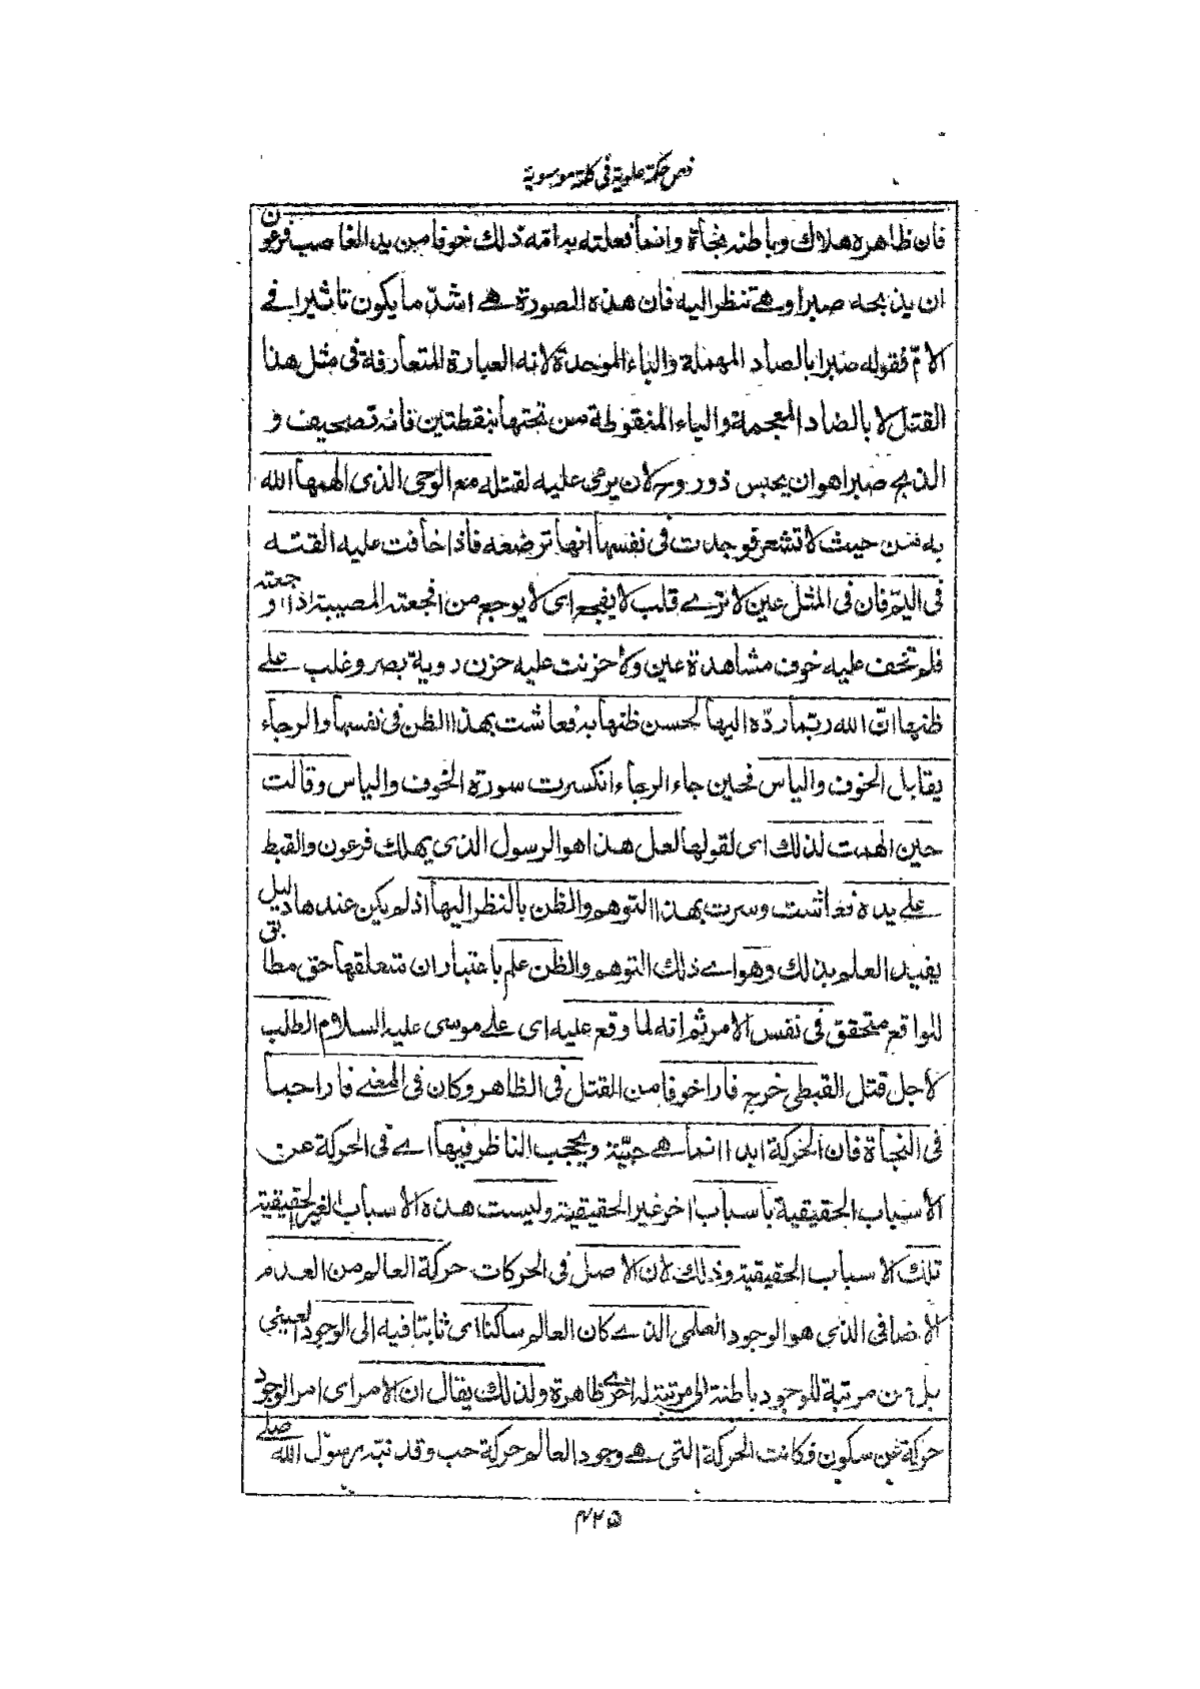 فص حكمة علوية في كلمة موسوية
فان ظاهره هلاك وباطنه نجاة وانما فعلته به امه ذلك خوفا من يد الغاصب فرعون
ان يذبحه صبرا وهے تنظر اليه فان هذه الصورة هے اشدّ ما يكون تاثيرا فے
الامّ فقوله صبرا بالصاد المهملة والباء الموحدة لانه العبارة المتعارفة فى مثل هذا
القتل لا بالضاد المعجمة والياء المنقوطة من تحتها بنقطتين فانه تصحيف و
الذبح صبرا هو ان يحبس ذو روح لان يرمى عليه لقتله مع الوحى الذى الهمها الله
به من حيث لا تشعر فوجدت فى نفسها انها ترضعه فاذا خافت عليه القته
فى اليمّ فان فى المثل عين لا ترے قلب لا يفجع اى لا يوجع من افجعته المصيبة اذا اوجعته
فلم تخف عليه خوف مشاهدة عين ولا حزنت عليه حزن روية بصر وغلب علے
ظنها انّ الله ربّما ردّه اليها لحسن ظنها به فعاشت بهذا الظن فى نفسها والرجاء
يقابل الخوف والياس فحين جاء الرجاء انكسرت سورة الخوف والياس وقالت
حين الهمت لذلك اى لقولها لعل هذا هو الرسول الذى يهلك فرعون والقبط
علے يده فعاشت وسرت بهذا التوهم والظن بالنظر اليها اذ لم يكن عندها دليل
يفيد العلم بذلك وهو اے ذلك التوهم والظن علم باعتبار ان متعلقها حق مطابق
للواقع متحقق فى نفس الامر ثم انه لما وقع عليه اى علے موسى عليه السلام الطلب
لاجل قتل القبطى خرج فارا خوفا من القتل فى الظاهر وكان فى المعنے فارا حبا
فى النجاة فان الحركة ابدا انما هے حبّيّة ويحجب الناظر فيها اے فى الحركة عن
الاسباب الحقيقية باسباب اخر غير الحقيقية وليست هذه الاسباب الغير الحقيقية
تلك الاسباب الحقيقية وذلك لان الاصل فى الحركات حركة العالم من العدم
الاضافى الذى هو الوجود العلمى الذے كان العالم ساكنا اى ثابتا فيه الى الوجود العينى
بل من مرتبة للوجود باطنة الى مرتبة له اخرے ظاهرة ولذلك يقال ان الامر اى امر الوجود
حركة عن سكون فكانت الحركة التى هے وجود العالم حركة حب وقد نبّه رسول الله صلے
۴۲۵